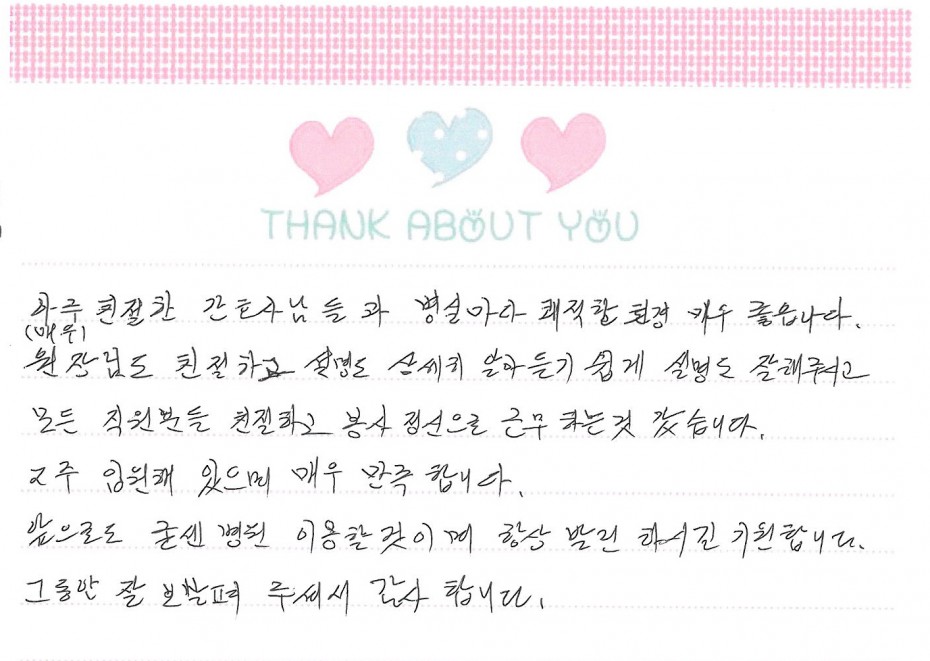 THANK ABOUT YOU
아주 친절한 간호사님들과 병실마다 쾌적한 환경 매우 좋읍니다.
(매우)
원장님도 친절하고 설명도 상세히 알아듣기 쉽게 설명도 잘해주시고
모든 직원분들 친절하고 봉사정신으로 근무 하는것 갔습니다.
2주 입원해 있으며 매우 만족 합니다.
앞으로도 굳센병원 이용할것이며 항상 발전 하시길 기원합니다.
그동안 잘 보살펴 주셔서 감사 합니다.